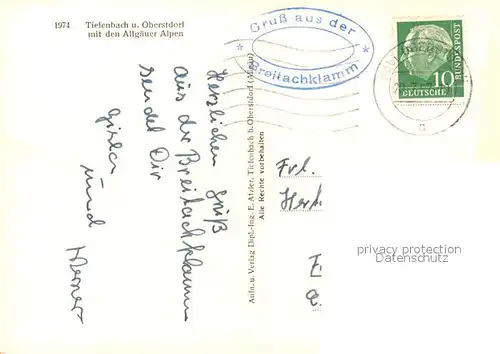 1974 Tiefenbach u. Oberstdorf
mit den Allgäuer Alpen
Gruß aus der
* *
Breitachklamm
10
DEUTSCHE
BUNDESPOST
Herzlichen Gruß
aus der Breitachklamm
sendet Dir
und Werner
Aufn. u. Verlag Dipl.-Ing. E. Atzler, Tiefenbach b. Oberstdorf (Allgäu)
Alle Rechte vorbehalten
Frl.
privacy protection
Datenschutz